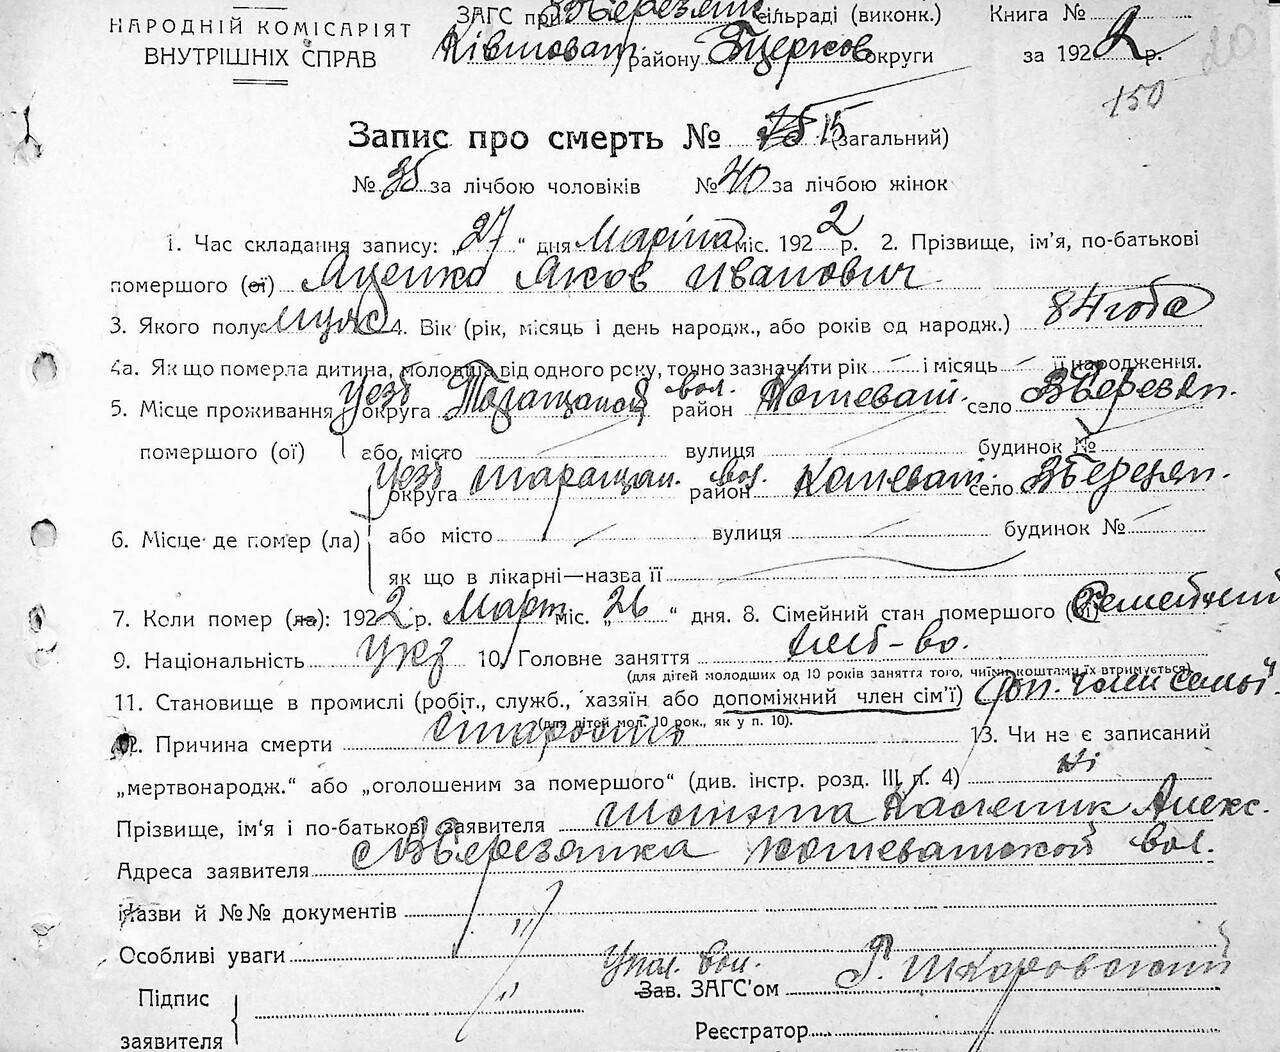 НАРОДНІЙ КОМІСАРІЯТ
ВНУТРІШНІХ СПРАВ
ЗАГС при ВБерезян сільраді (виконк.)
району БЦерков округи
Книга №
за 1922 р.
20
150
Запис про смерть № 75 (загальний)
№ 35 за лічбою чоловіків № 40 за лічбою жінок
1. Час складання запису: „27“ дня Марта міс. 1922 р. 2. Прізвище, ім'я, по-батькові
помершого (ої) Яценко Яков Иванович
3. Якого полу муж 4. Вік (рік, місяць і день народж., або років од народж.) 84 года
4а. Як що померла дитина, молодша від одного року, точно зазначити рік і місяць її народження.
5. Місце проживання уезд округа Таращанск вол. район Кошеват. село ВБерезян.
помершого (ої) або місто вулиця будинок №
уезд округа Таращан. вол. район Кошеват. село ВБерезян.
6. Місце де помер (ла) або місто вулиця будинок №
як що в лікарні—назва її
7. Коли помер (ла): 1922 р. Март міс. „26“ дня. 8. Сімейний стан помершого Семейний
9. Національність Укр 10. Головне заняття хліб-во.
(для дітей молодших од 10 років заняття того, чиїми коштами їх втримується)
11. Становище в промислі (робіт., служб., хазяїн або допоміжний член сім'ї) Доп. член семьї
(для дітей мол. 10 рок., як у п. 10).
12. Причина смерти старость 13. Чи не є записаний
„мертвонародж.“ або „оголошеним за помершого“ (див. інстр. розд. III п. 4) ні
Прізвище, ім'я і по-батькові заявителя Алекс.
Адреса заявителя с ВБерезянка Кошеватской вол.
Назви й №№ документів „
Особливі уваги
Підпис
заявителя „
Упол. вол.
Зав. ЗАГС'ом Г. Шкаровский
Реєстратор